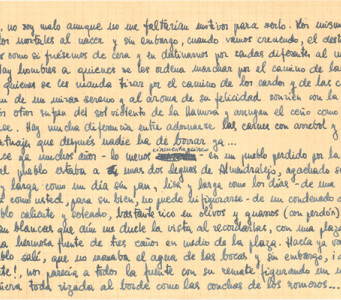 , no soy malo aunque no me faltarían motivos para serlo. Los mismos
los mortales al nacer y sin embargo, cuando vamos creciendo, el dest
s como si fuésemos de cera y en destinarnos por sendas diferentes al m
Hay hombres a quienes se les ordena marchar por el camino de las
quienes se les manda tirar por el camino de los cardos y de las c
n de un mirar sereno y al aroma de su felicidad sonríen con la
os otros sufren del sol violento de la llanura y arrugan el ceño como
se. Hay mucha diferencia entre adornarse las carnes con arrebol y
tuajes que después nadie ha de borrar ya...
ce ya muchos años - lo menos cincuenta y cinco - en un pueblo perdido por la
el pueblo estaba a unas dos leguas de Almendralejo, agachado s
y larga como un día sin pan, lisa y larga como los días - de una
como usted, para su bien, no puede ni figurarse - de un condenado a
blo caliente y soleado, bastante rico en olivos y guarros (con perdón)
an blancas que aún me duele la vista al recordarlas, con una plaz
a hermosa fuente de tres caños en medio de la plaza. Hacía ya va
blo salí, que no manaba el agua de las bocas y sin embargo, ¡
te!, nos parecía a todos la fuente con su remate figurando un n
ñera toda rizada al borde como las conchas de los romeros...